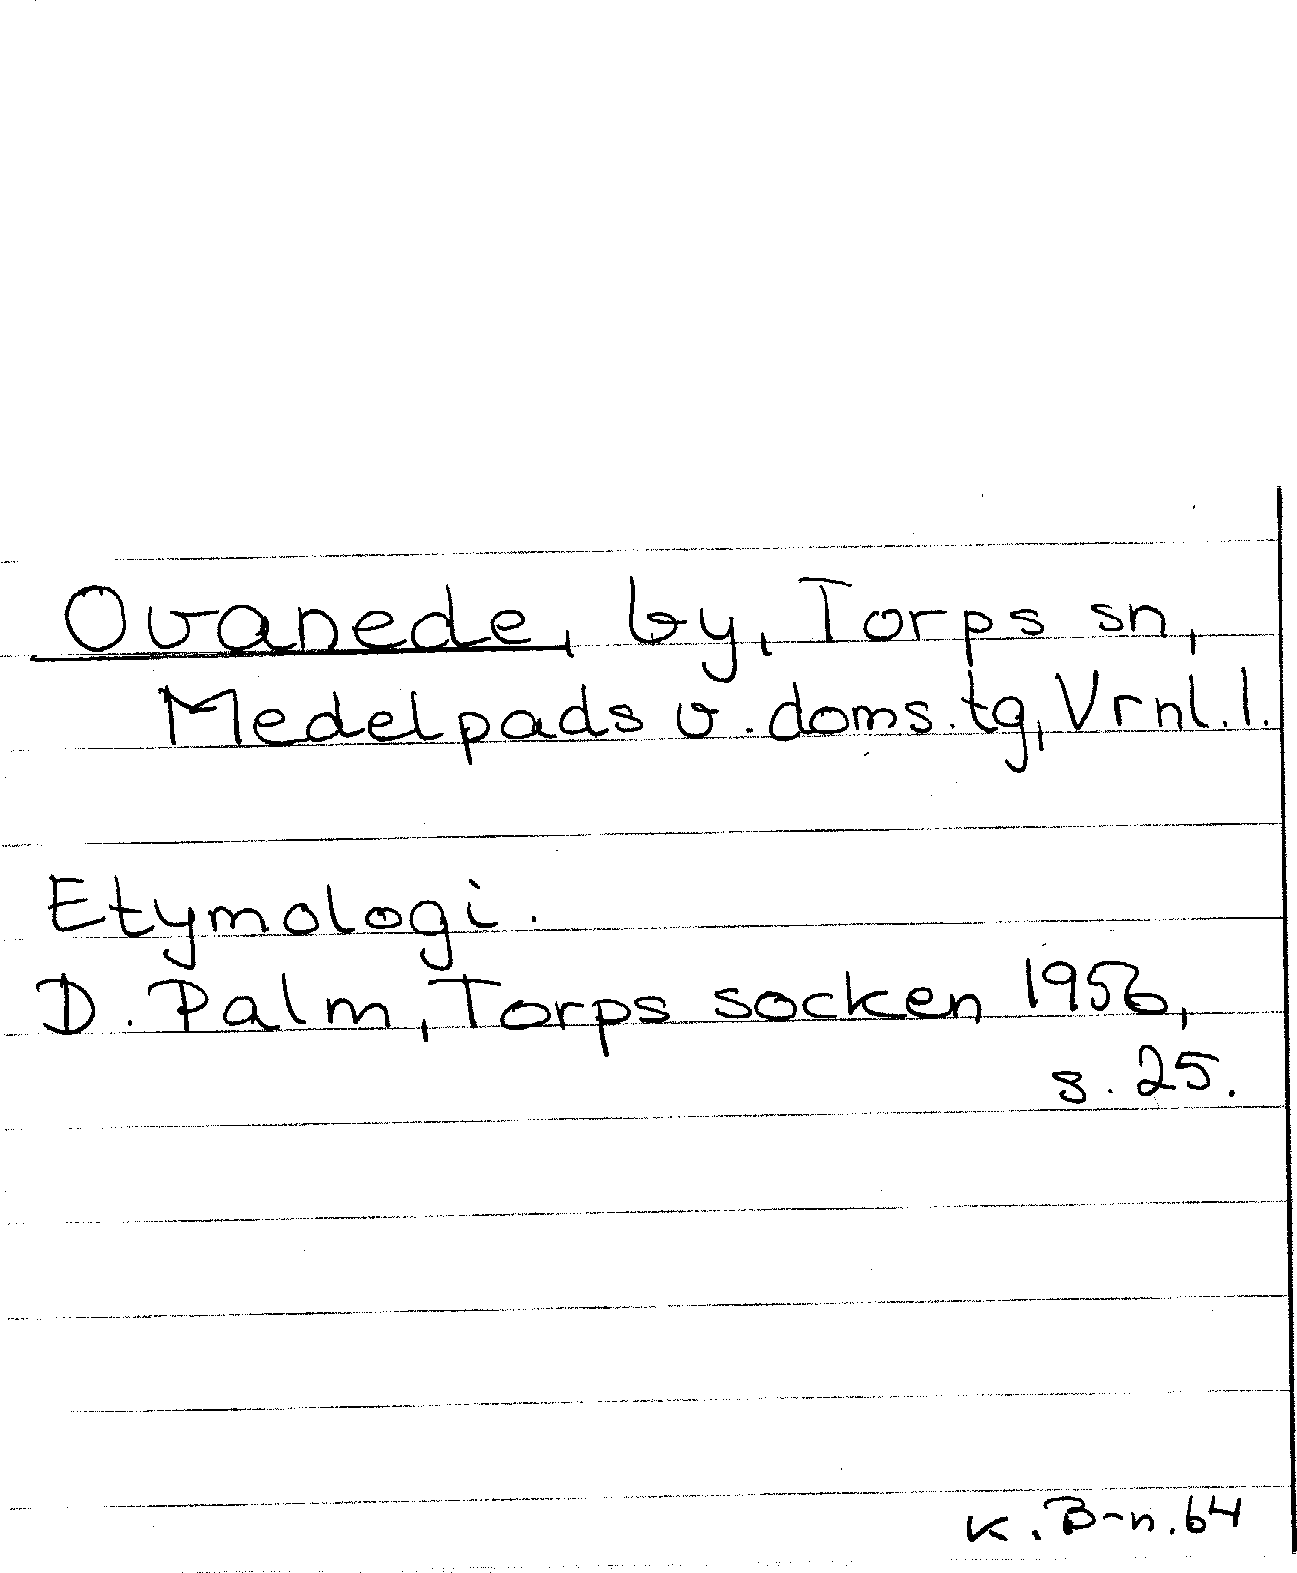 Ovanede, by, Torps sn,
Medelpads v. doms.tg, Vrnl.l.
Etymologi.
D. Palm, Torps socken 1956,
s. 25.
K. B-n. 64